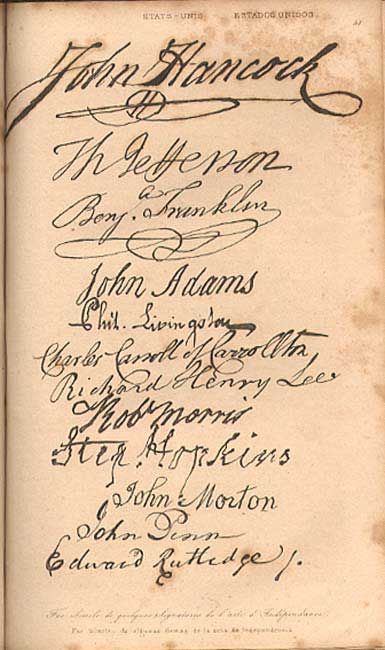 ETATS-UNIS ESTADOS UNIDOS.
John Hancock
Th Jefferson
Benj. Franklin
John Adams
Phil. Livingston
Charles Carroll of Carrollton
Richard Henry Lee
Robt Morris
Step. Hopkins
John Morton
John Penn
Edward Rutledge
Fac Simile de quelques signatures de l'acte d'Indépendance.
Fac Simile, de algunas firmas de la acta de independencia